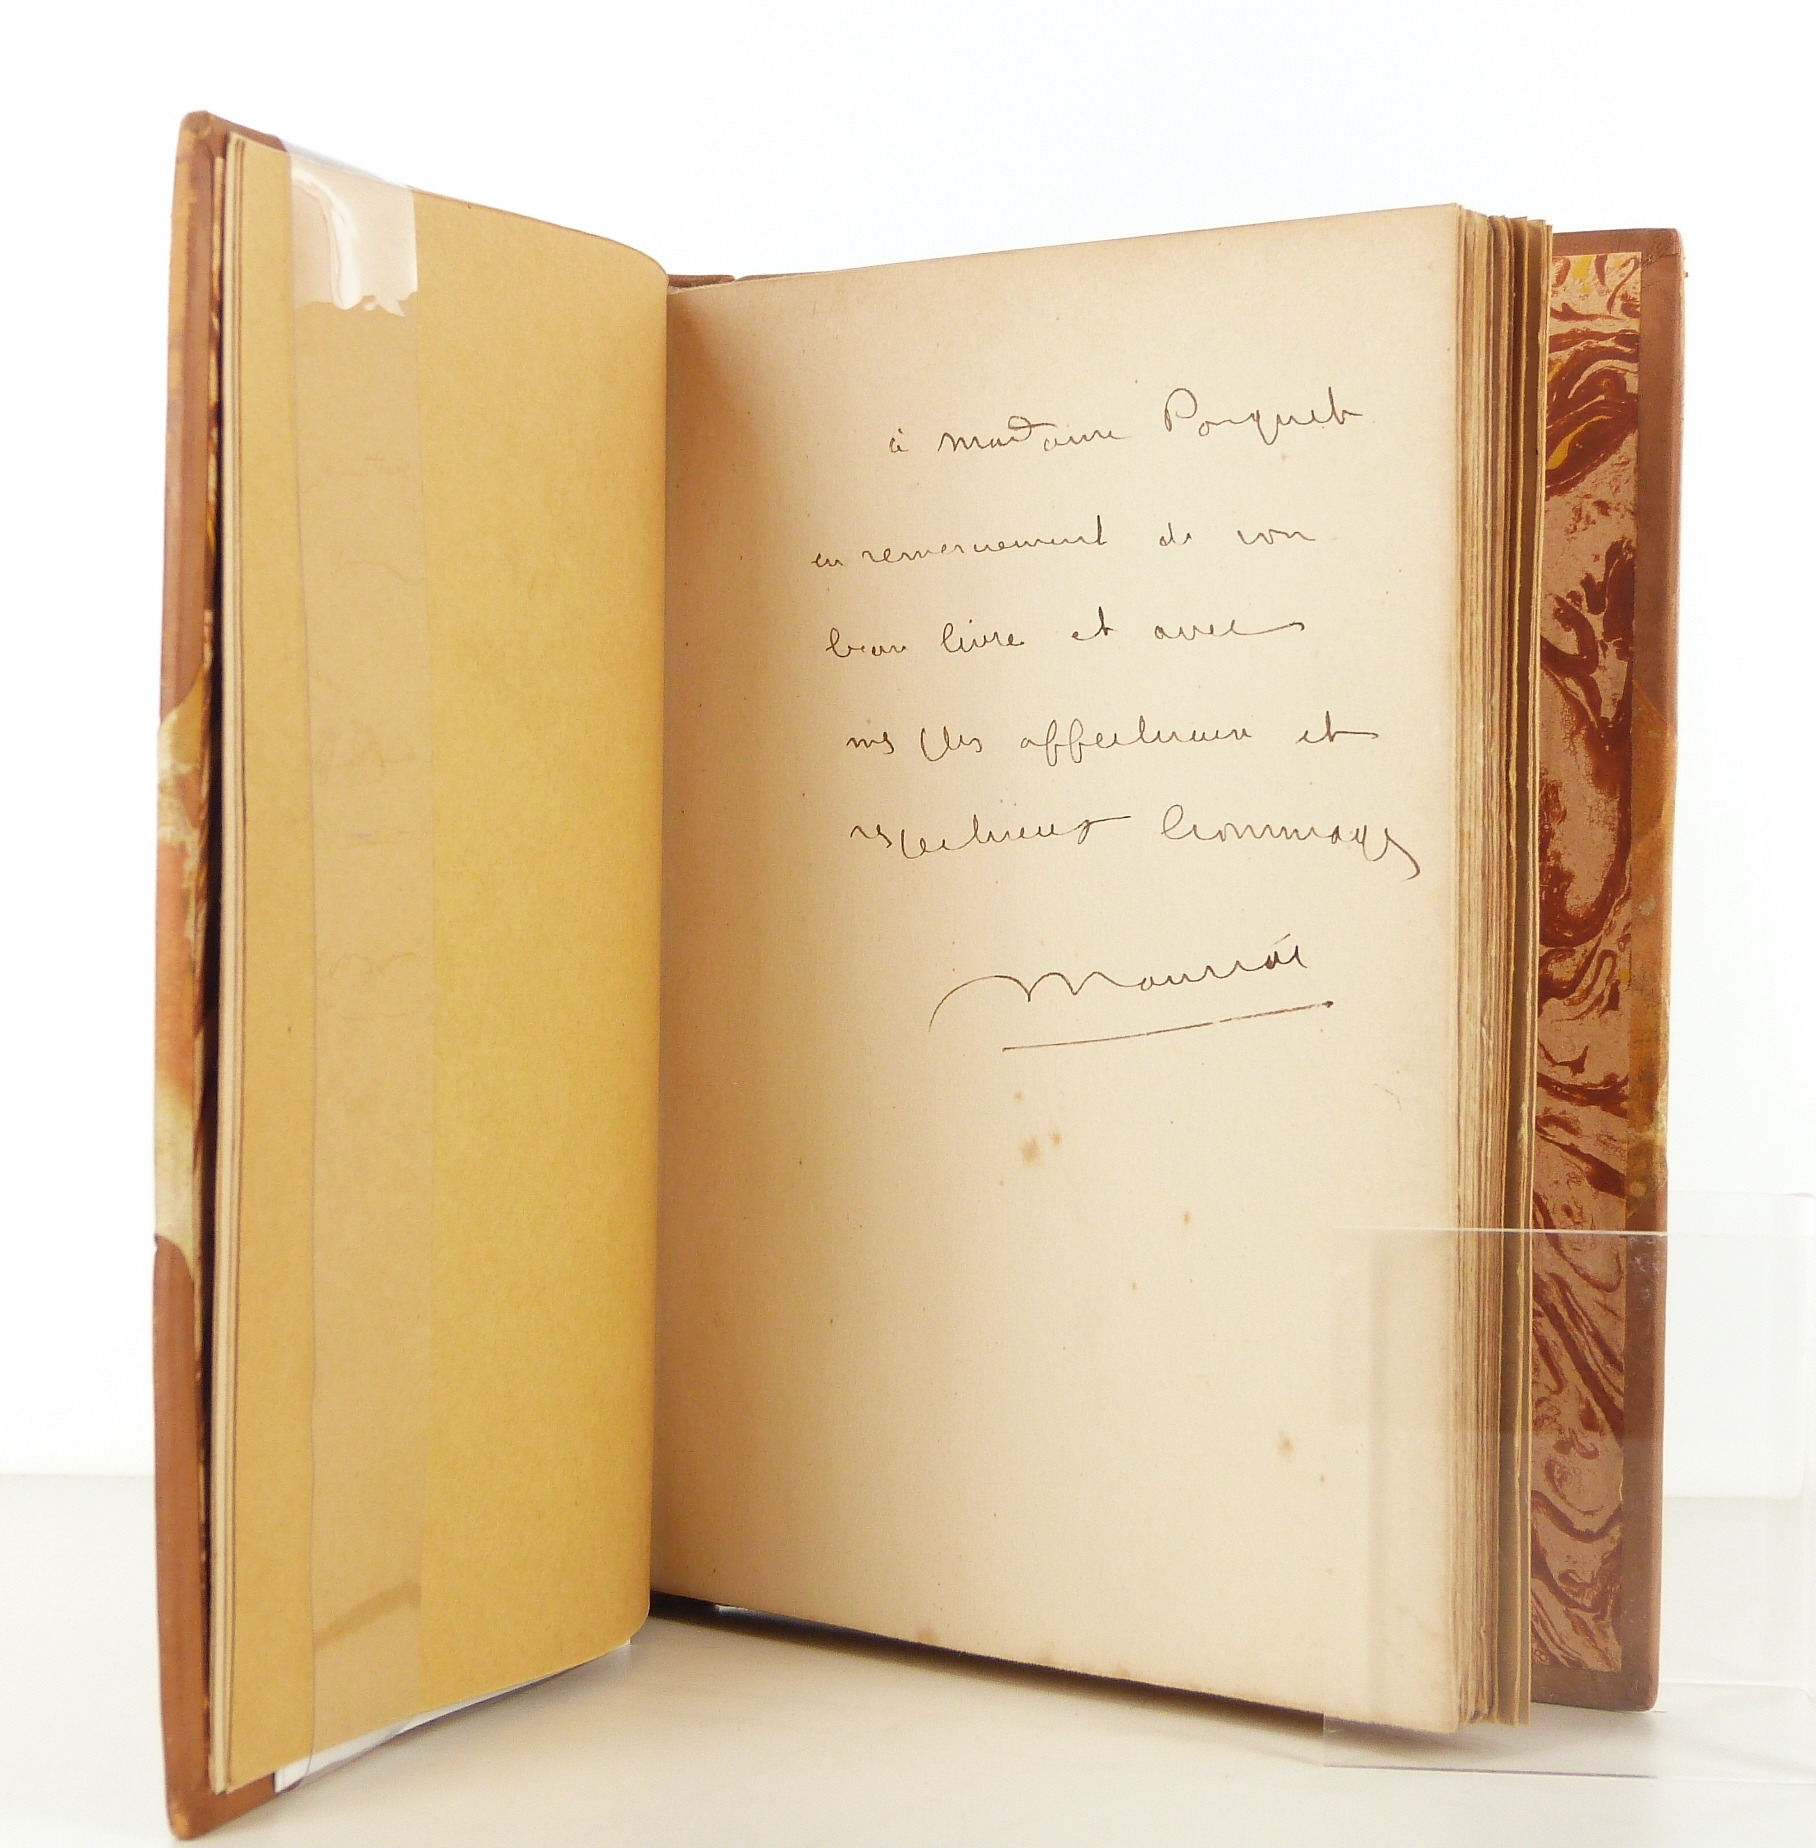 à Madame Pouquet
en remerciement de son
beau livre et avec
mes plus affectueux et
respectueux hommages
Mauriac